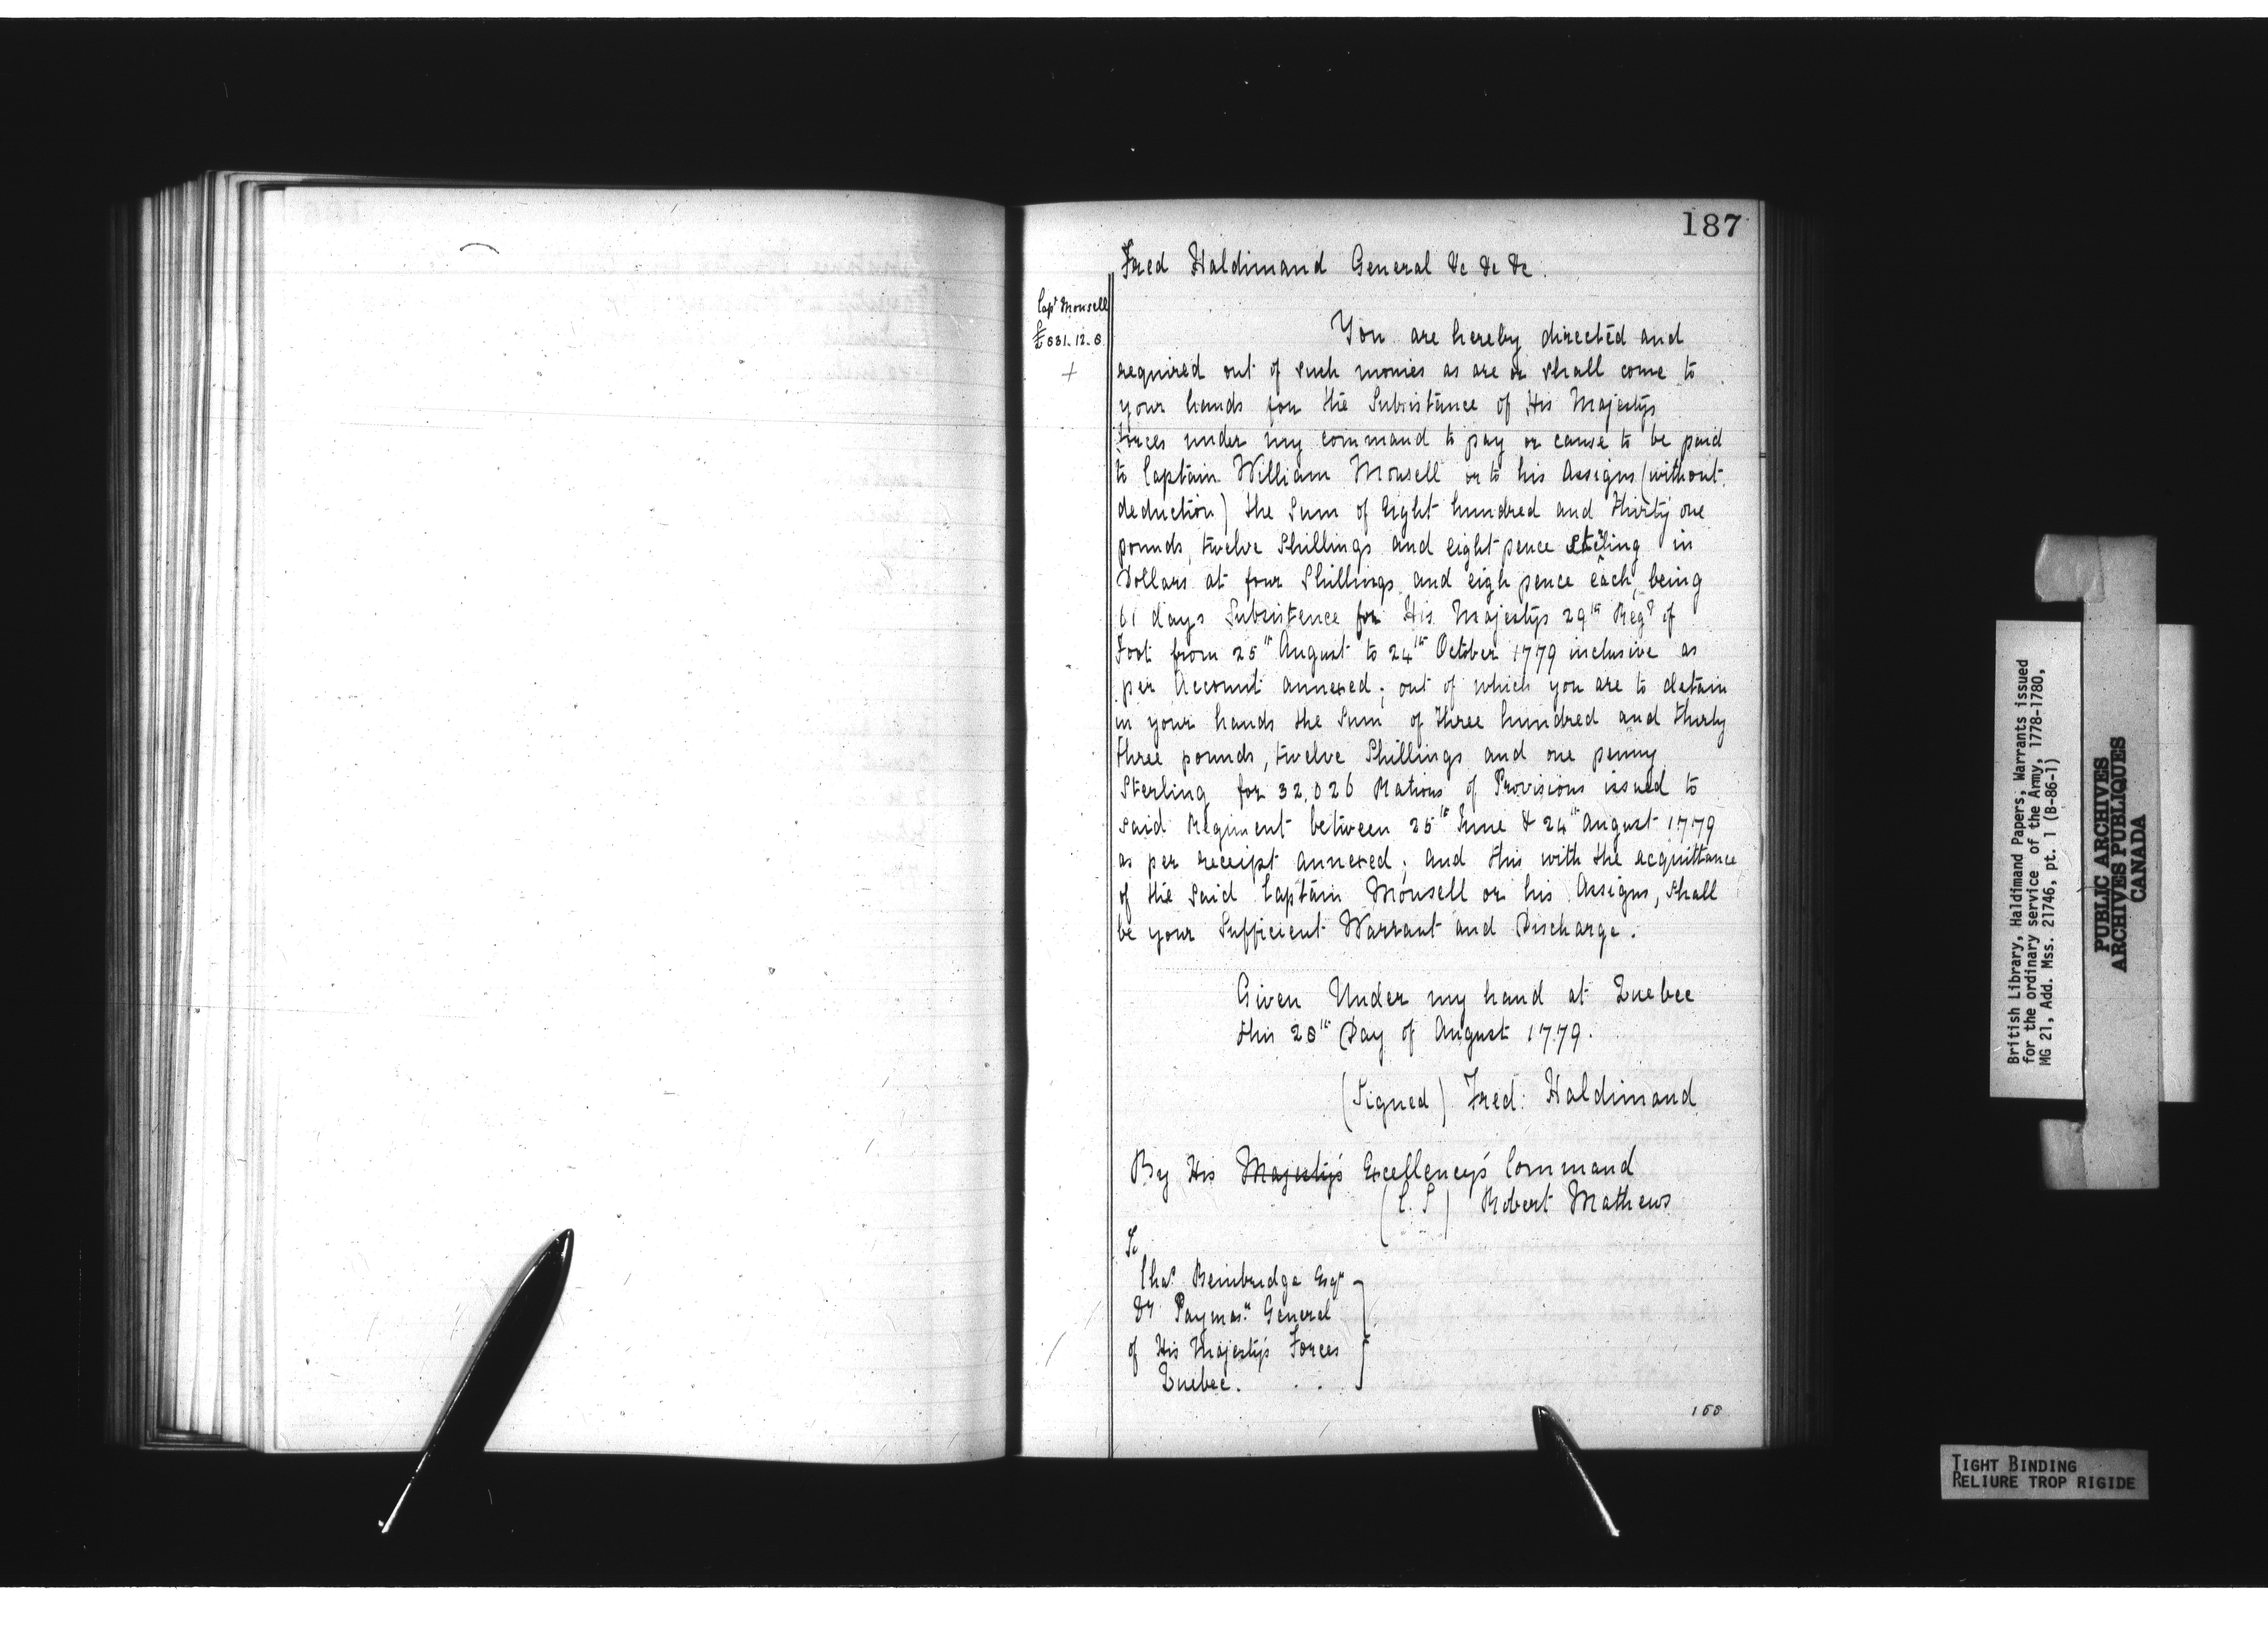 187
Fred Haldimand General &c &c &c.
Capt Monsell
£831.12.8
+
You are hereby directed and
required out of such monies as are or shall come to
your hands for the Subsistance of His Majestys
forces under my command to pay or cause to be paid
to Captain William Monsell or to his Assigns (without
deduction) the Sum of Eight hundred and thirty one
pounds, twelve Shillings and eight pence sterling in
Dollars at four Shillings and eigh pence each, being
61 days Subsistence for His Majestys 29th Regt of
Foot from 25th August to 24th October 1779 inclusive as
per Account annexed; out of which you are to detain
in your hands the Sum of three hundred and thirty
three pounds, twelve Shillings and one penny
Sterling for 32,026 Rations of Provisions issued to
said Regiment between 25th June & 24th August 1779
as per receipt annexed; and this with the acquittance
of the said Captain Monsell or his Assigns, shall
be your Sufficient Warrant and Discharge.
Given Under my hand at Quebec
this 28th Day of August 1779.
(Signed) Fred: Haldimand
By His Majesty's Excellency's Command
(C. S) Robert Mathews
To
Chas Bembridge Esqr
Dy Paymasr General
of His Majesty's Forces
Quebec.
188
British Library, Haldimand Papers, Warrants issued
for the ordinary service of the Army, 1778-1780,
MG 21, Add. Mss. 21746, pt. 1 (B-86-1)
PUBLIC ARCHIVES
ARCHIVES PUBLIQUES
CANADA
TIGHT BINDING
RELIURE TROP RIGIDE